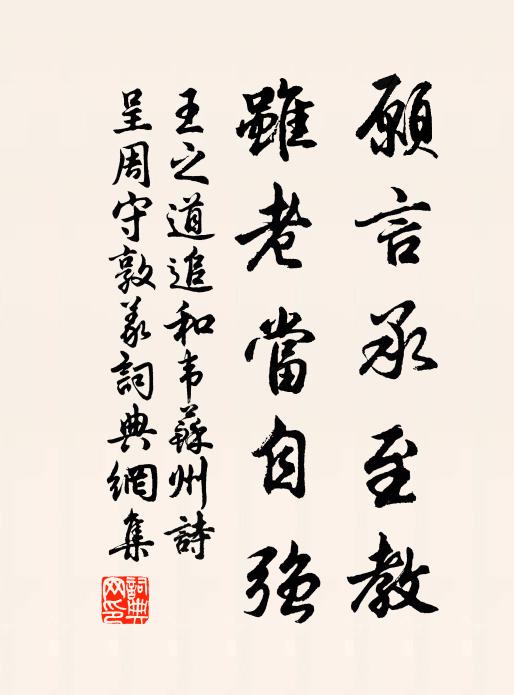 願言承至教
雖老當自強
王之道追和韦蘇州詩
呈周守敦義詞典網集
詞典
网印